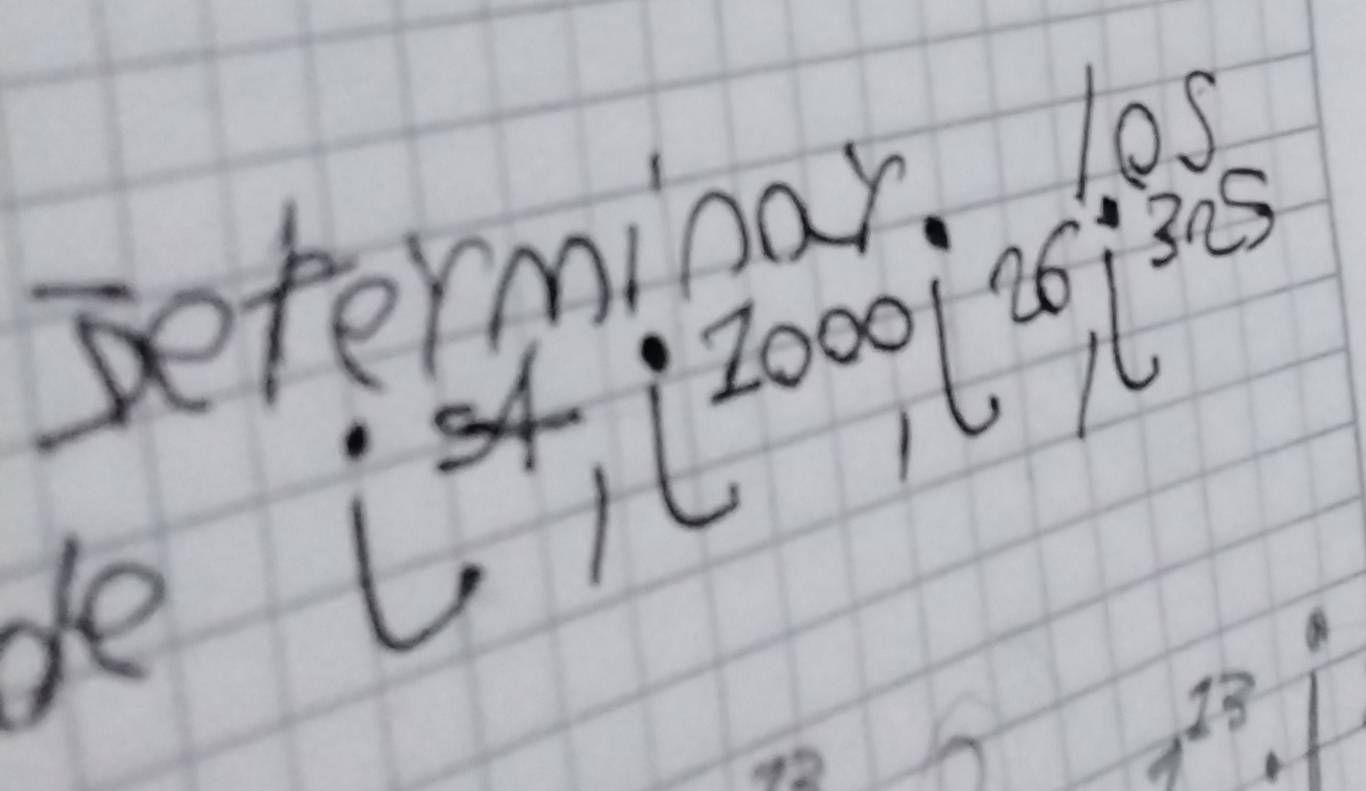 Determinar los
de i⁵⁴, i¹⁰⁰⁰, i²⁶, i³²⁵
13